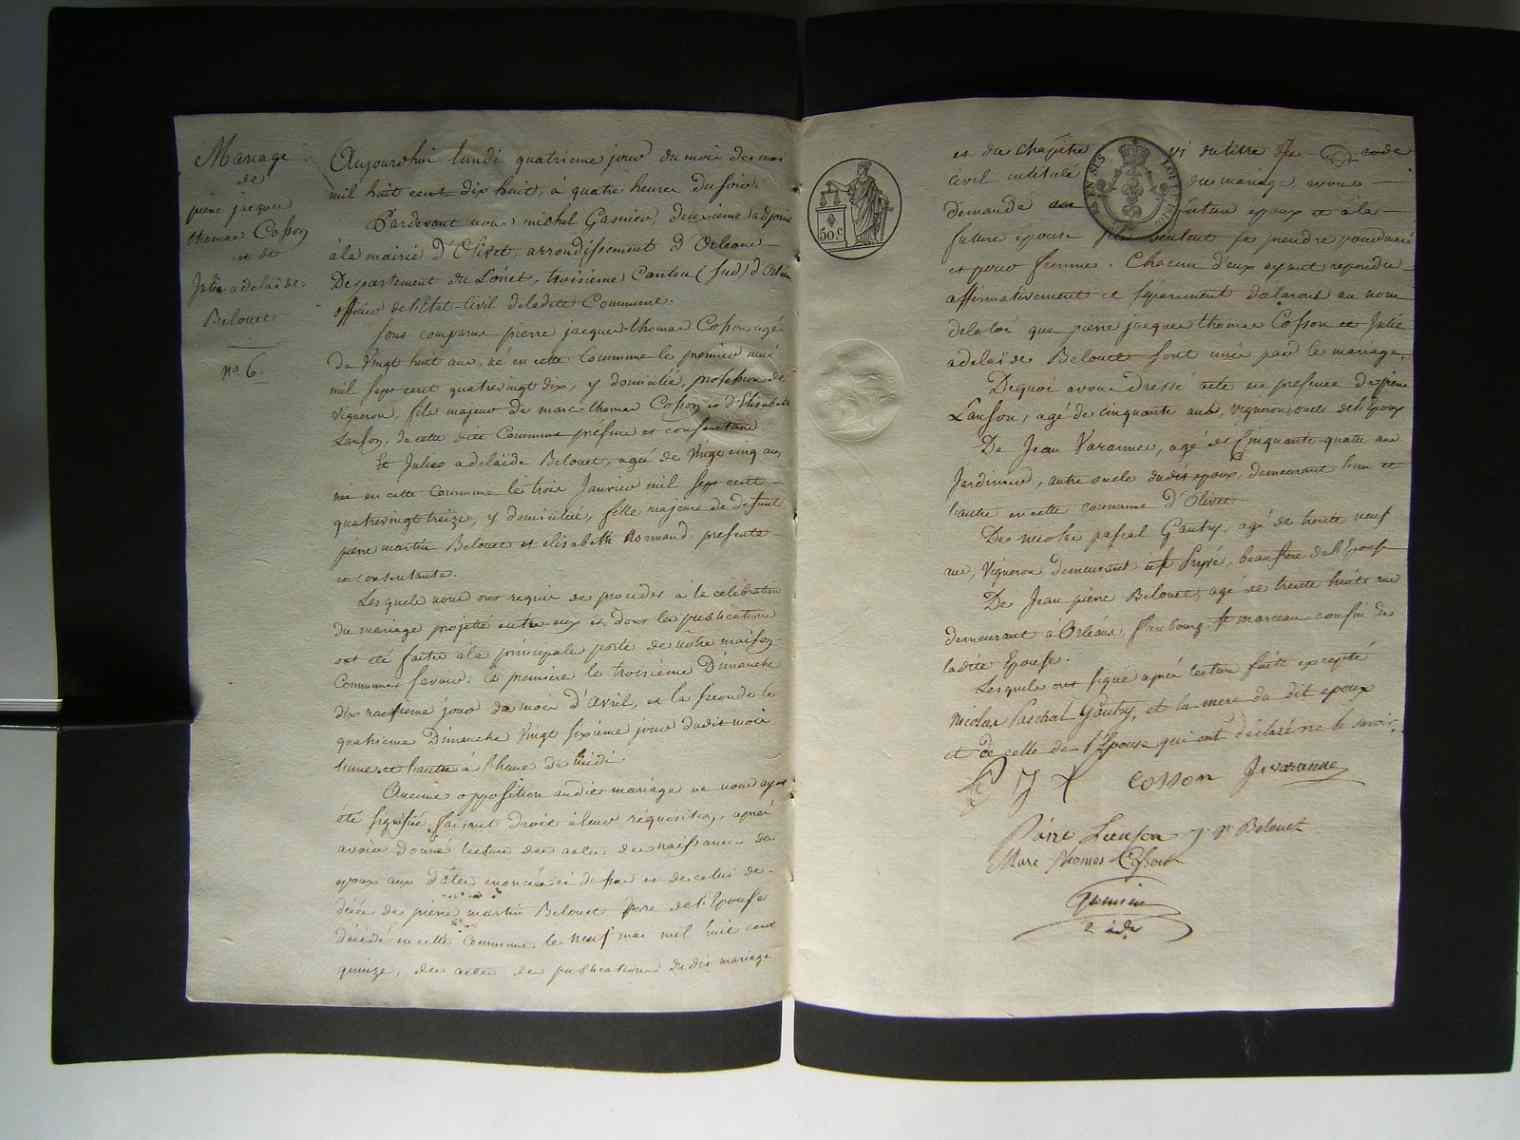 Mariage
de
pierre jacques
thomas Cosson
et de
Julie adelaïde
Belouet
no. 6.
Aujourdhui lundi quatrieme jour du mois de mai
mil huit cent dix huit, à quatre heures du soir
Pardevant nous michel Gasnier, deuxieme adjoint
à la mairie d'Olivet, arrondissement d'Orleans
Departement du Loiret, troisieme Canton (sud) d'Orléans
officier de l'Etat-Civil de ladite Commune.
Sont comparus pierre jacques thomas Cosson agé
de vingt huit ans, né en cette Commune le premier mai
mil sept cent quatrevingt dix, y domicilié, profession de
vigneron, fils majeur de marc thomas Cosson et d'Elisabeth
Lanson, de cette dite Commune présens et consentans
Et Julie adelaïde Belouet, agée de vingt cinq ans,
née en cette Commune le trois Janvier mil sept cent
quatrevingt treize, y domiciliée, fille majeure de defunt
pierre martin Belouet et elisabeth Normand presente
et consentante.
Lesquels nous ont requis de proceder à la célébration
du mariage projetté entre eux et dont les publications
ont été faites à la principale porte de nôtre maison
Commune, savoir: la premiere le troisième Dimanche
dix neuvieme jour du mois d'Avril, et la seconde le
quatrieme Dimanche vingt sixieme jour dudit mois
l'une et l'autre à l'heure de midi.
Aucune opposition audit mariage ne nous ayant
été signifiée, faisant droit à leur requisition, après
avoir donné lecture des actes de naissances des
epoux aux dates enoncées ci dessus et de celui de
décès de pierre martin Belouet pere de l'Epouse
décédé en cette Commune, le neuf mai mil huit cent
quinze, des actes de publications dudit mariage
50 c
EN SUS
et du Chapitre VI du titre du code
Civil intitulé du mariage, avons
demandé au futur epoux et à la
future épouse s'ils veulent se prendre pour mari
et pour femme. Chacun d'eux ayant repondu
affirmativement et séparement declarons au nom
de la loi que pierre jacques thomas Cosson et Julie
adelaïde Belouet sont unis par le mariage.
Dequoi avons dressé acte en presence de pierre
Lanson, agé de cinquante ans, vigneron oncle de l'Epoux
De Jean Varanne, agé de Cinquante quatre ans
Jardinier, autre oncle dudit epoux, demeurant l'un et
l'autre en cette commune d'Olivet
De nicolas pascal Gautry, agé de trente neuf
ans, vigneron demeurant à St Pryvé, beau frere de l'Epouse
De Jean pierre Belouet, agé de trente huit ans
demeurant à Orléans, faubourg St marceau cousin de
ladite Epouse.
Lesquels ont signé après lecture faite excepté
nicolas Paschal Gautry, et la mere du dit epoux
et de celle de l'Epouse qui ont déclaré ne le savoir.
cosson J. varanne
Pierre Lanson J. P. Belouet
Marc thomas Cosson
Gasnier